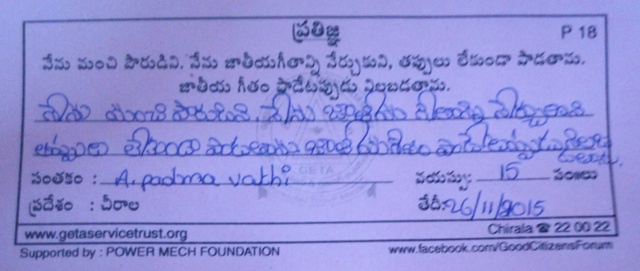 ప్రతిజ్ఞ P 18
నేను మంచి పౌరుడిని. నేను జాతీయగీతాన్ని నేర్చుకుని, తప్పులు లేకుండా పాడతాను.
జాతీయ గీతం పాడేటప్పుడు నిలబడతాను.
నేను మంచి పౌరుడిని నేను జాతీయ గీతాన్ని నేర్చుకుని
తప్పులు లేకుండా పాడతాను జాతీయగీతం
సంతకం : A. padma vathi వయస్సు: 15 సం॥లు
ప్రదేశం : చీరాల తేదీ: 26/11/2015
www.getaservicetrust.org Chirala ☎ 22 00 22
Supported by : POWER MECH FOUNDATION www.facebook.com/GoodCitizensForum